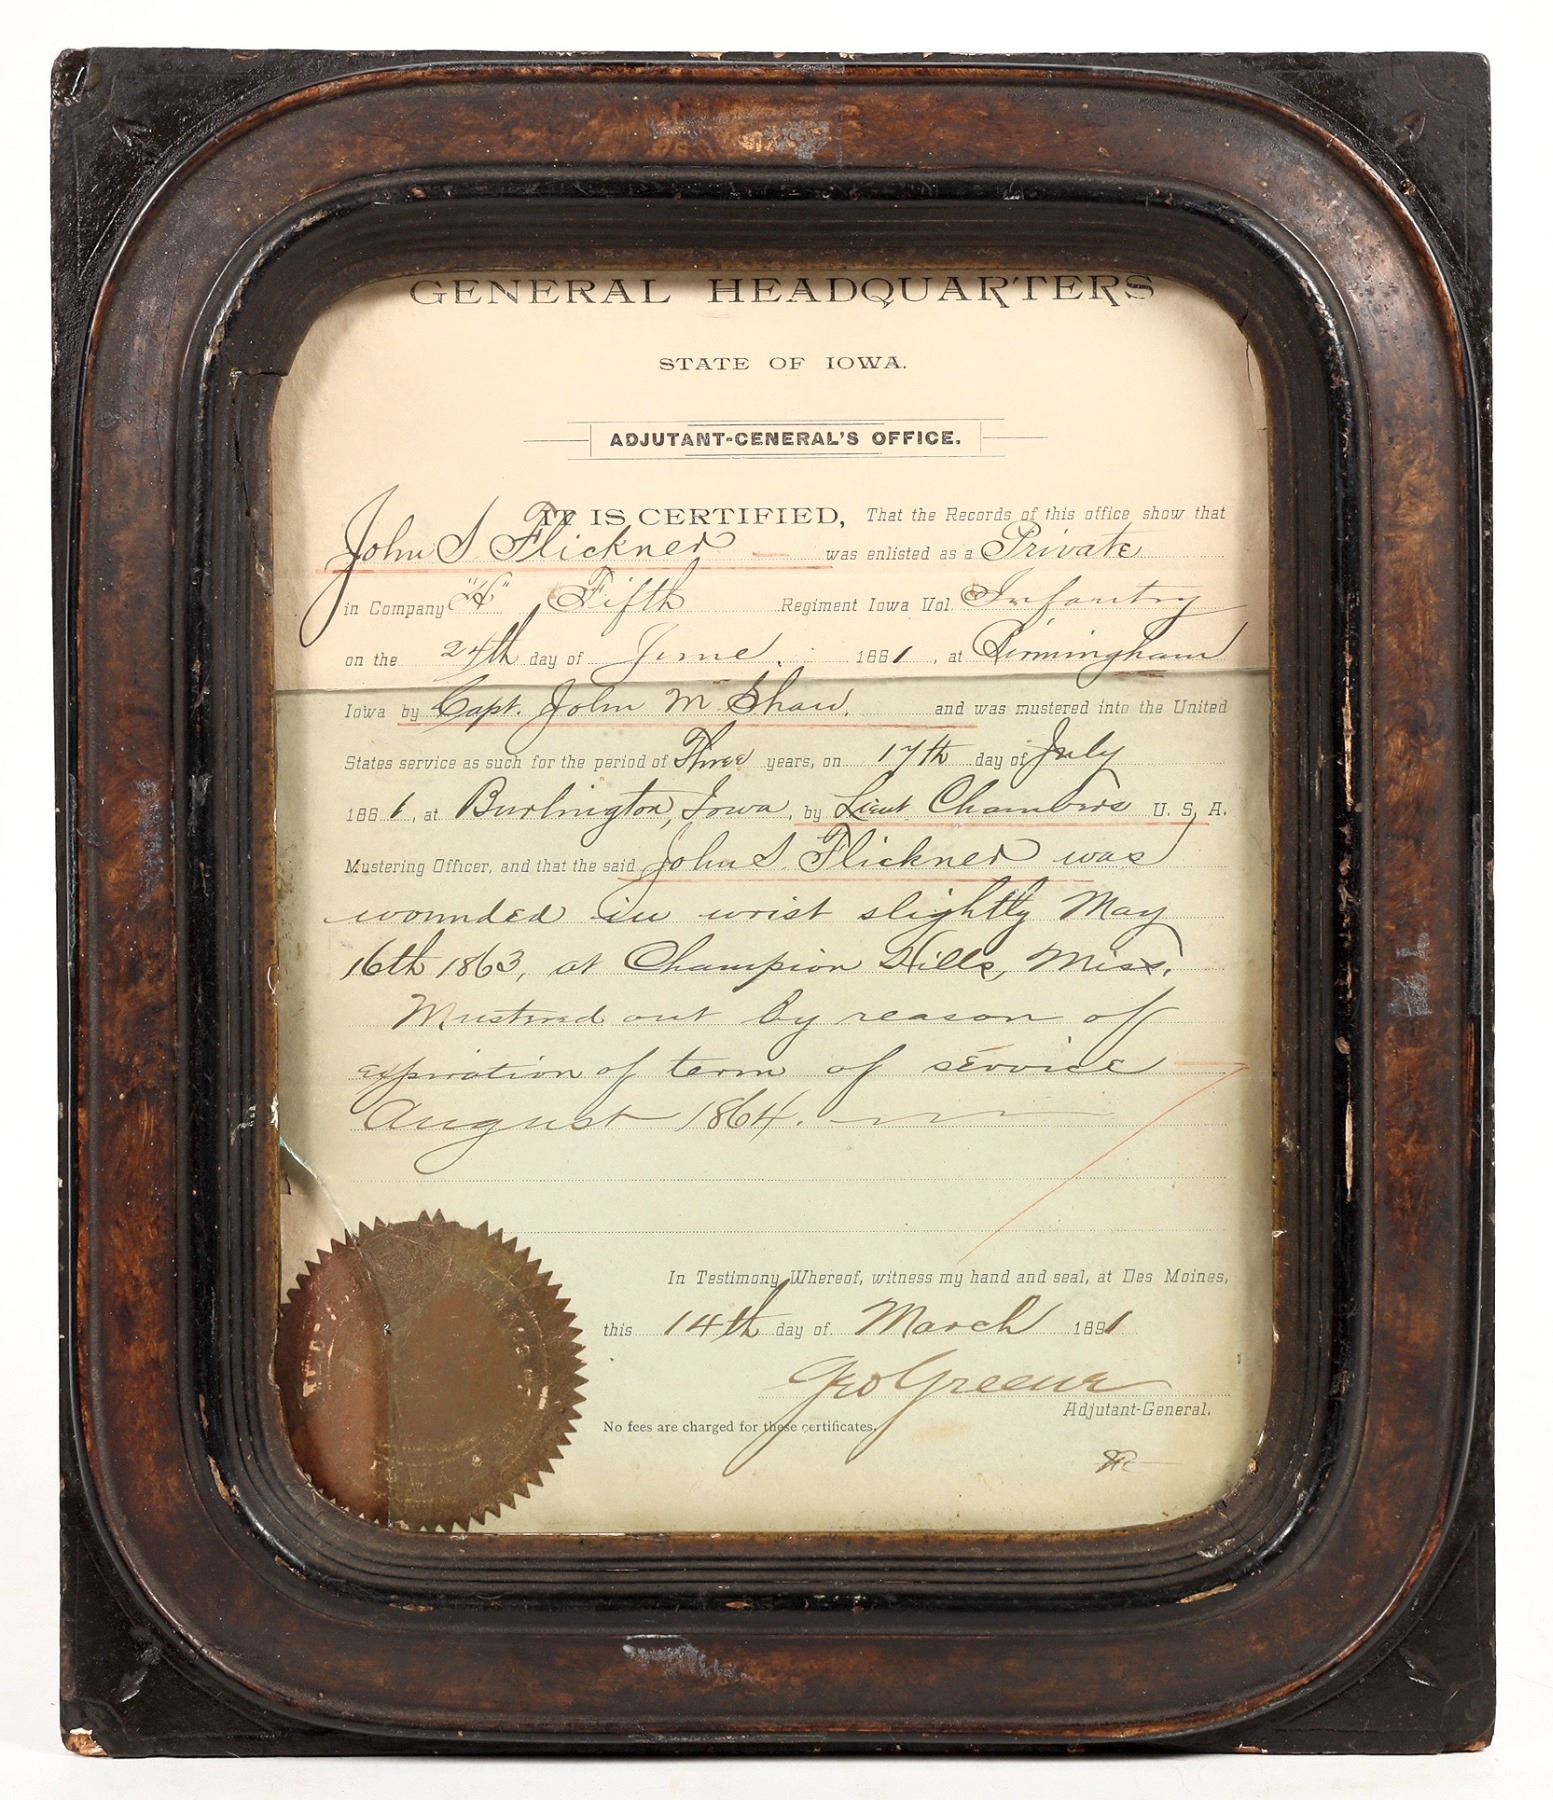 GENERAL HEADQUARTERS
STATE OF IOWA.
ADJUTANT-GENERAL'S OFFICE.
IT IS CERTIFIED, That the Records of this office show that
John S. Flickner was enlisted as a Private
in Company "H" Fifth Regiment Iowa Vol. Infantry
on the 24th day of June 1861, at Birmingham
Iowa by Capt. John M. Shaw, and was mustered into the United
States service as such for the period of Three years, on 17th day of July
1861, at Burlington, Iowa, by Lieut Chambers U. S. A.
Mustering Officer, and that the said John S. Flickner was
wounded in wrist slightly May
16th 1863, at Champion Hills, Miss.
Mustered out by reason of
expiration of term of service
August 1864.
In Testimony Whereof, witness my hand and seal, at Des Moines,
this 14th day of March 1891
Geo Greene
Adjutant-General.
No fees are charged for these certificates.